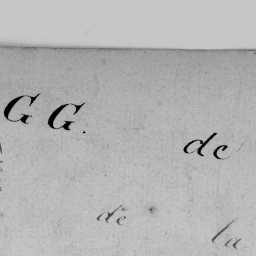 GG. de
de la